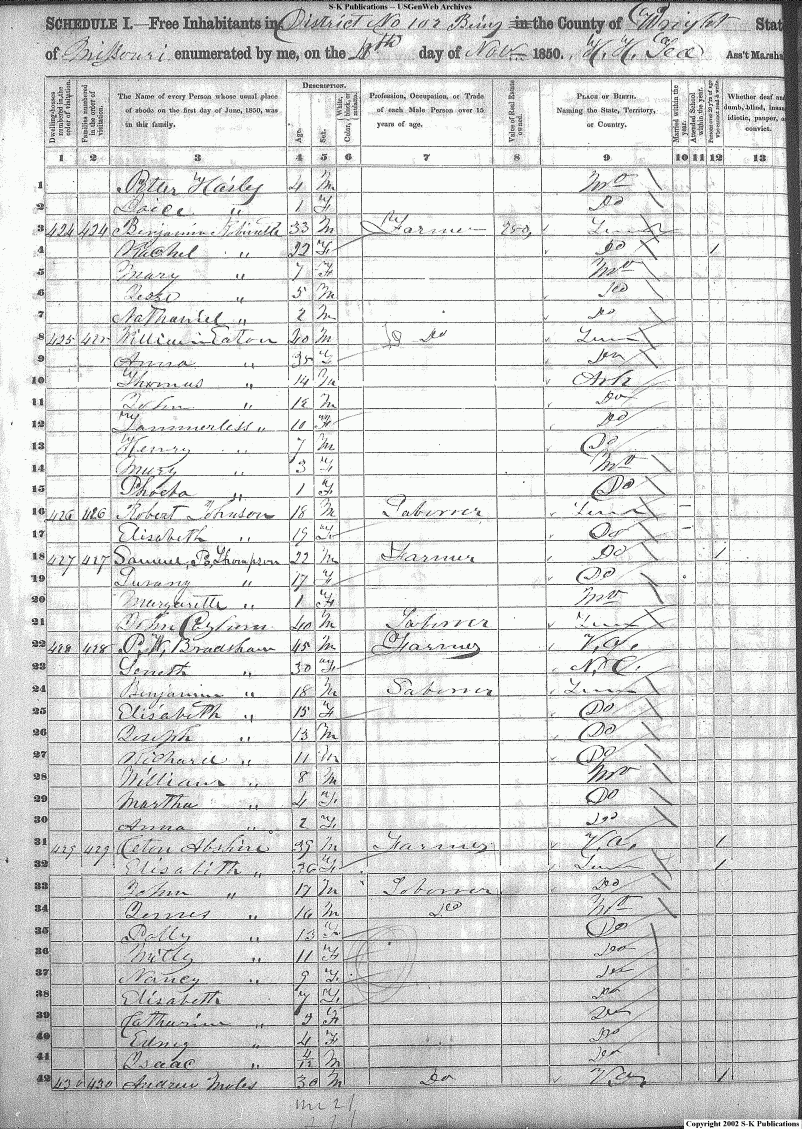 S-K Publications -- USGenWeb Archives
SCHEDULE I.—Free Inhabitants in District No 102 Being in the County of Wright State
of Missouri enumerated by me, on the day of Nov 1850. Ass't Marsha
Dwelling-houses numbered in the order of visitation.
Families numbered in the order of visitation.
The Name of every Person whose usual place of abode on the first day of June, 1850, was in this family.
DESCRIPTION.
Age.
Sex.
Color, White, black, or mulatto.
Profession, Occupation, or Trade of each Male Person over 15 years of age.
Value of Real Estate owned.
PLACE OF BIRTH. Naming the State, Territory, or Country.
Married within the year.
Attended School within the year.
Whether deaf and dumb, blind, insane, idiotic, pauper, or convict.
1 2 3 4 5 6 7 8 9 10 11 12 13
1 Peter Hasley 4 M Mo
2 " 1 F Do
3 424 424 Benjamin 33 M Farmer Tenn
4 Rachel " 22 F Do 1
5 Mary " 7 F Mo
6 Jesse " 5 M Do
7 Nathaniel " 2 M Do
8 425 425 William Eaton 40 M Do Tenn
9 Anna " 35 F Do
10 Thomas " 14 M Ark
11 John " 12 M Do
12 " 10 F Do
13 Henry " 7 M Do
14 Mary " 3 F Mo
15 Pheeba " 1 F Do
16 426 426 Robert Johnson 18 M Laborer Tenn
17 Elisebeth " 19 F Do
18 427 427 Samuel P. Thompson 22 M Farmer Do 1
19 " 17 F Do
20 Margarette " 1 F Mo
21 John 40 M Laborer Tenn
22 428 428 P. W. Bradsham 45 M Farmer V.a.
23 " 30 F N.C.
24 Benjamin " 18 M Laborer Tenn
25 Elisabeth " 15 F Do
26 Joseph " 13 M Do
27 Richard " 11 M Do
28 William " 8 M Mo
29 Martha " 4 F Do
30 Anna " 2 F Do
31 429 429 Abshire 39 M Farmer V.a. 1
32 Elisabith " 36 F Tenn 1
33 John " 17 M Laborer Do
34 James " 16 M Do Mo
35 Polly " 13 F Do
36 Milly " 11 F Do
37 Nancy " 9 F Do
38 Elisabeth 7 F Do
39 Catharine " F Do
40 " 4 F Do
41 Isaac " 4/12 M Do
42 430 430 Andrew Moles 30 M Do V.a. 1
Copyright 2002 S-K Publications